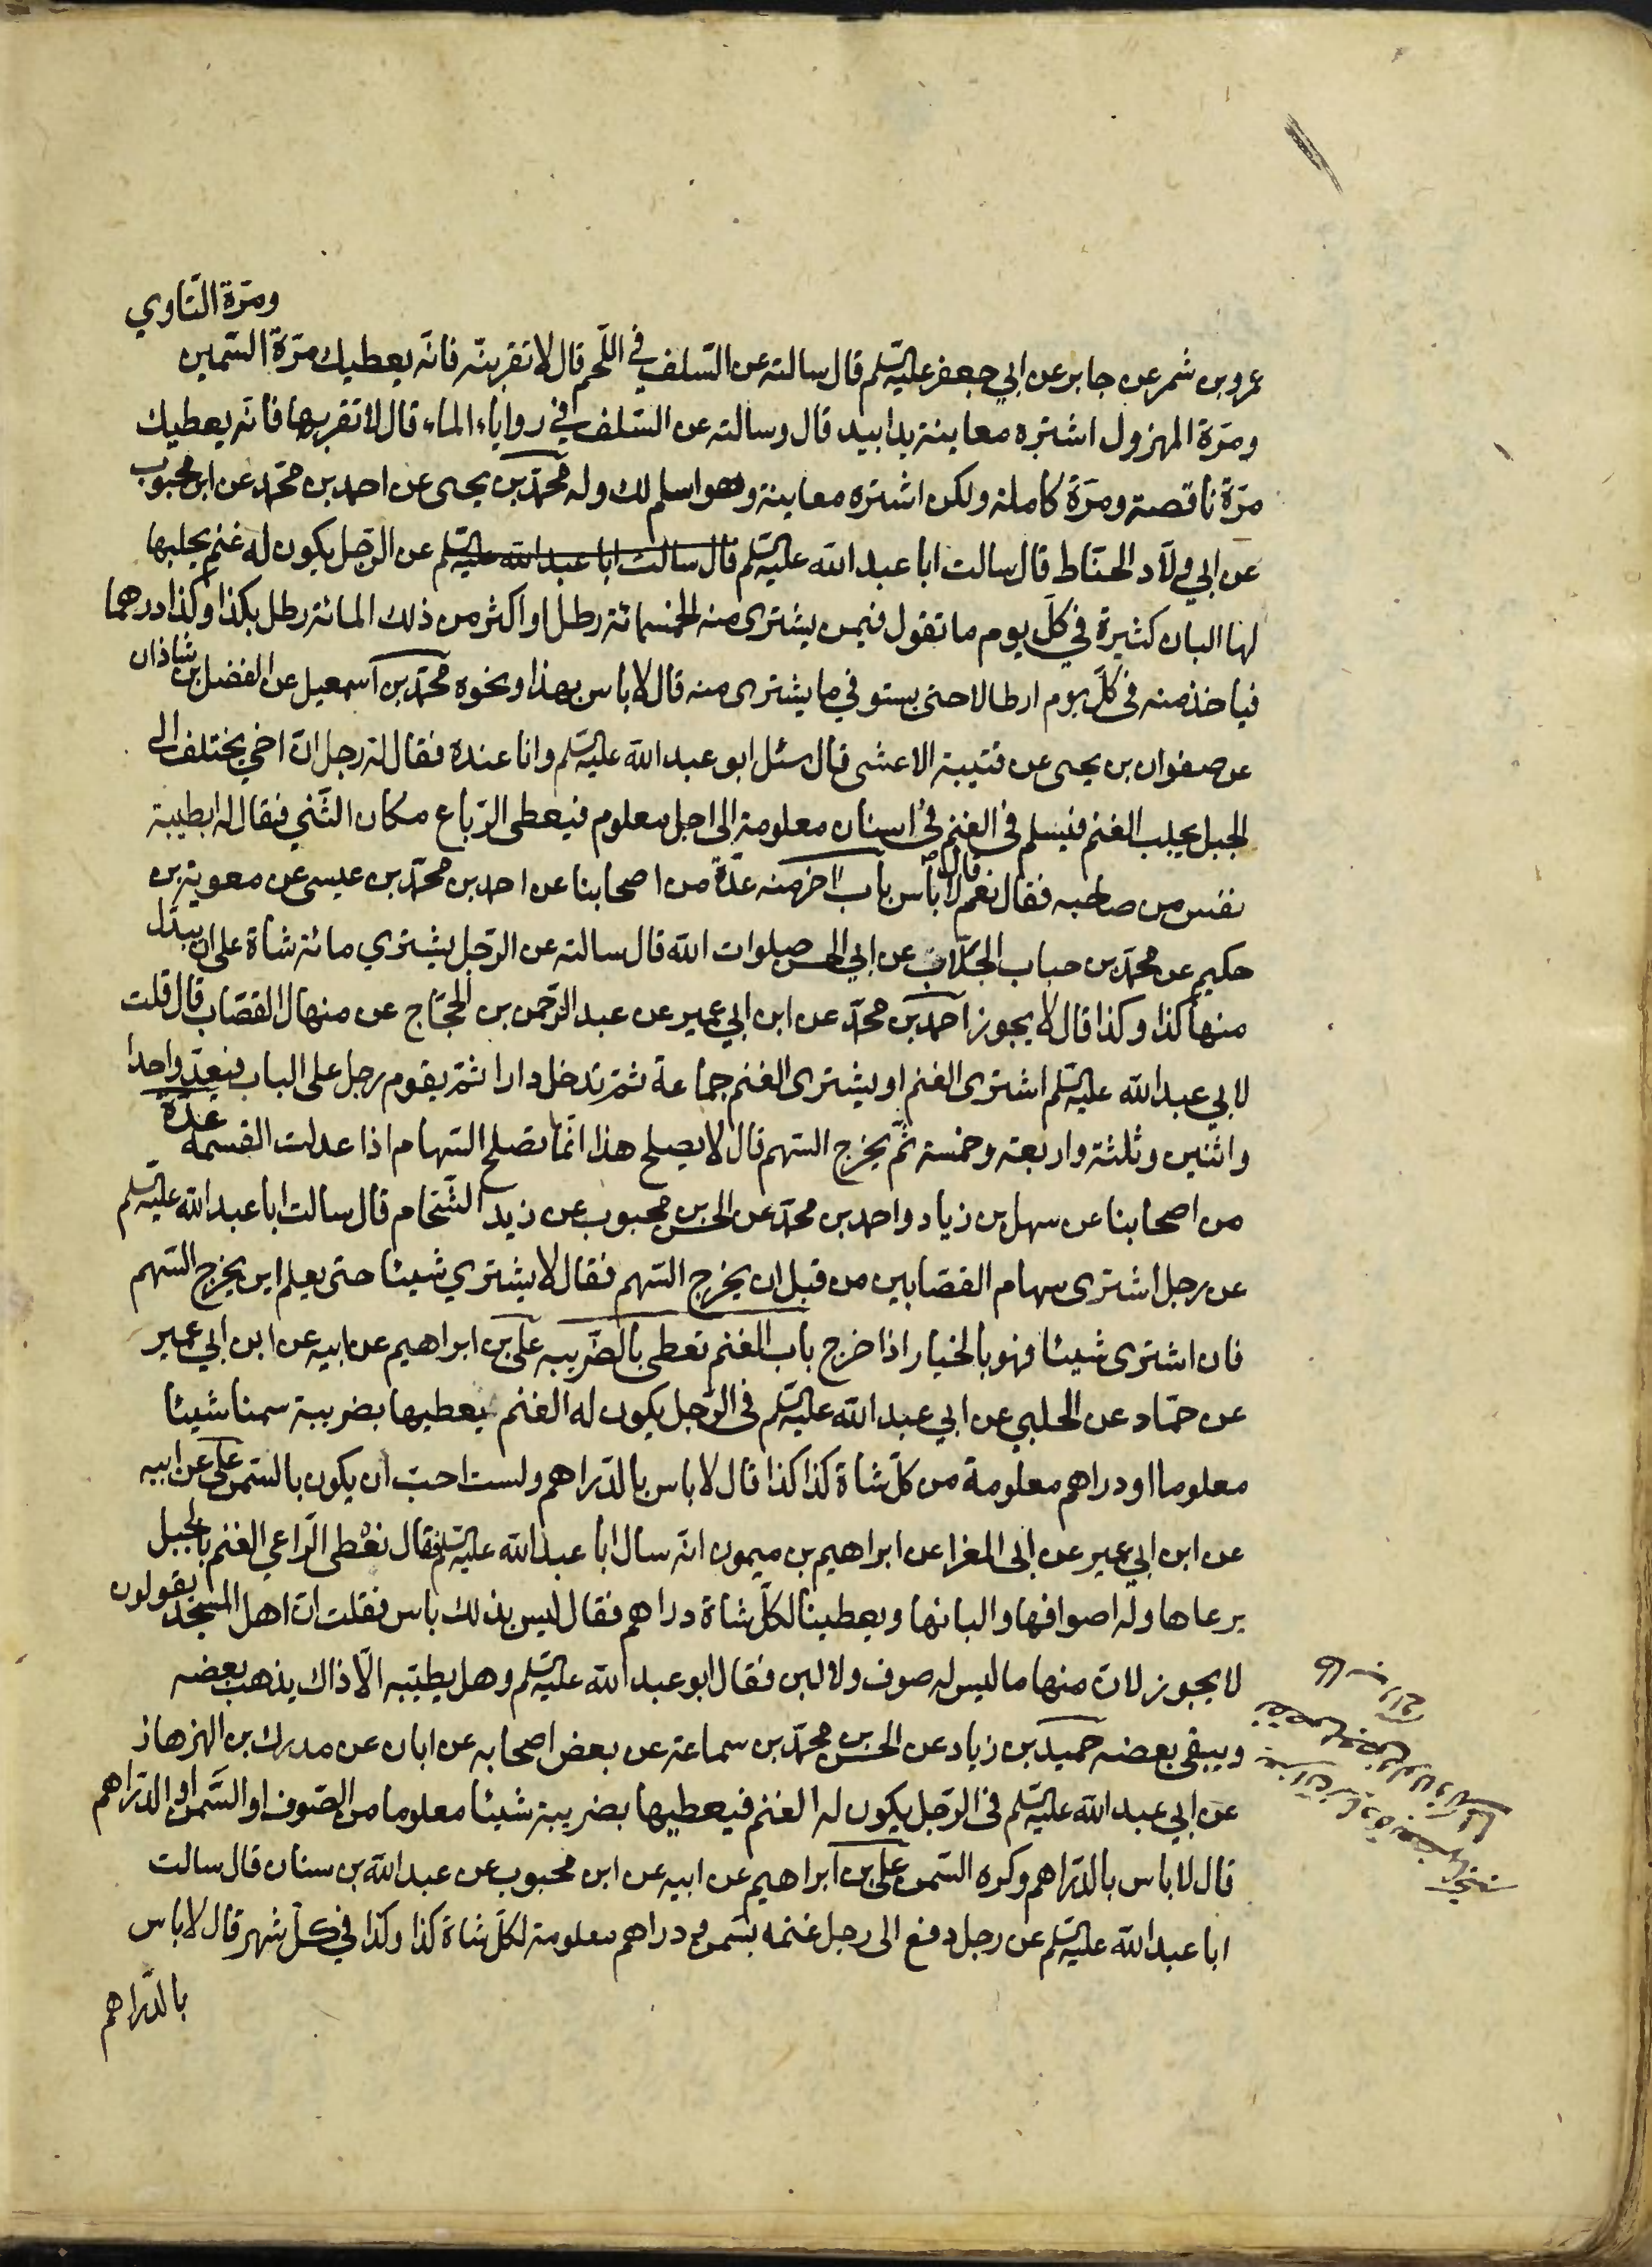 ومرّة التّاوي
عمرو بن شمر عن جابر عن ابي جعفر عليه السّلم قال سالته عن السّلف في اللّحم قال لا تقربنّه فانّه يعطيك مرّة السّمين
ومرّة المهزول اشتره معاينة يدا بيد قال وسالته عن السّلف في روايا الماء قال لا تقربها فانّه يعطيك
مرّة ناقصة ومرّة كاملة ولكن اشتره معاينة وهو اسلم لك وله محمّد بن يحيى عن احمد بن محمّد عن ابن محبوب
عن ابي ولّاد الحنّاط قال سالت ابا عبد الله عليه السّلم قال سالت ابا عبد الله عليه السّلم عن الرّجل يكون له غنم يحلبها
لها البان كثيرة في كلّ يوم ما تقول فيمن يشترى منه الخمسمائة رطل او اكثر من ذلك المائة رطل بكذا وكذا درهما
فياخذ منه في كلّ يوم ارطالا حتى يستوفي ما يشترى منه قال لا باس بهذا ونحوه محمّد بن اسمعيل عن الفضل بن شاذان
عن صفوان بن يحيى عن قتيبة الاعشى قال سئل ابو عبد الله عليه السّلم وانا عنده فقال له رجل انّ اخي يختلف الى
الجبل يجلب الغنم فيسلم في الغنم في اسنان معلومة الى اجل معلوم فيعطى الرّباع مكان الثّني فقال له ابطيبة
نفس من صاحبه فقال نعم قال لا بأس باب اخر منه عدّة من اصحابنا عن احمد بن محمّد بن عيسى عن معوية بن
حكيم عن محمّد بن حباب الجلّاب عن ابي الحسن صلوات الله قال سالته عن الرّجل يشتري مائة شاة على ان يبدّل
منها كذا وكذا قال لا يجوز احمد بن محمّد عن ابن ابي عمير عن عبد الرّحمن بن الحجّاج عن منهال القصّاب قال قلت
لابي عبد الله عليه السّلم اشترى الغنم او يشترى الغنم جماعة ثمّ تدخل دارا ثمّ يقوم رجل على الباب فيعدّ واحدا
واثنين وثلثة واربعة وخمسة ثمّ يخرج السّهم قال لا يصلح هذا انّما تصلح السّهام اذا عدلت القسمة عدّة
من اصحابنا عن سهل بن زياد واحمد بن محمّد عن الحسن بن محبوب عن زيد الشّحّام قال سالت ابا عبد الله عليه السّلم
عن رجل اشترى سهام القصّابين من قبل ان يخرج السّهم فقال لا يشتري شيئا حتى يعلم اين يخرج السّهم
فان اشترى شيئا فهو بالخيار اذا خرج باب الغنم تعطى بالضّريبه علي بن ابراهيم عن ابيه عن ابن ابي عمير
عن حمّاد عن الحلبي عن ابي عبد الله عليه السّلم في الرّجل يكون له الغنم يعطيها بضريبة سمنا شيئا
معلوما او دراهم معلومة من كلّ شاة كذا كذا قال لا باس بالدّراهم ولست احبّ ان يكون بالسّمن علي عن ابيه
عن ابن ابي عمير عن ابى المغرا عن ابراهيم بن ميمون انّه سال ابا عبد الله عليه السّلم فقال نعطى الرّاعي الغنم بالجبل
يرعاها وله اصوافها والبانها ويعطينا لكلّ شاة دراهم فقال ليس بذلك باس فقلت انّ اهل المسجد يقولون
لا يجوز لانّ منها ما ليس له صوف ولا لبن فقال ابو عبد الله عليه السّلم وهل يطيّبه الّا ذاك يذهب بعضه
ويبقى بعضه حميد بن زياد عن الحسن بن محمّد بن سماعة عن بعض اصحابه عن ابان عن مدرك بن الهزهاز
عن ابي عبد الله عليه السّلم في الرّجل يكون له الغنم فيعطيها بضريبة شيئا معلوما من الصّوف او السّمن او الدّراهم
قال لا باس بالدّراهم وكره السّمن علي بن ابراهيم عن ابيه عن ابن محبوب عن عبد الله بن سنان قال سالت
ابا عبد الله عليه السّلم عن رجل دفع الى رجل غنمه بسمن ودراهم معلومة لكلّ شاة كذا وكذا في كلّ شهر قال لا باس
بالدّراهم